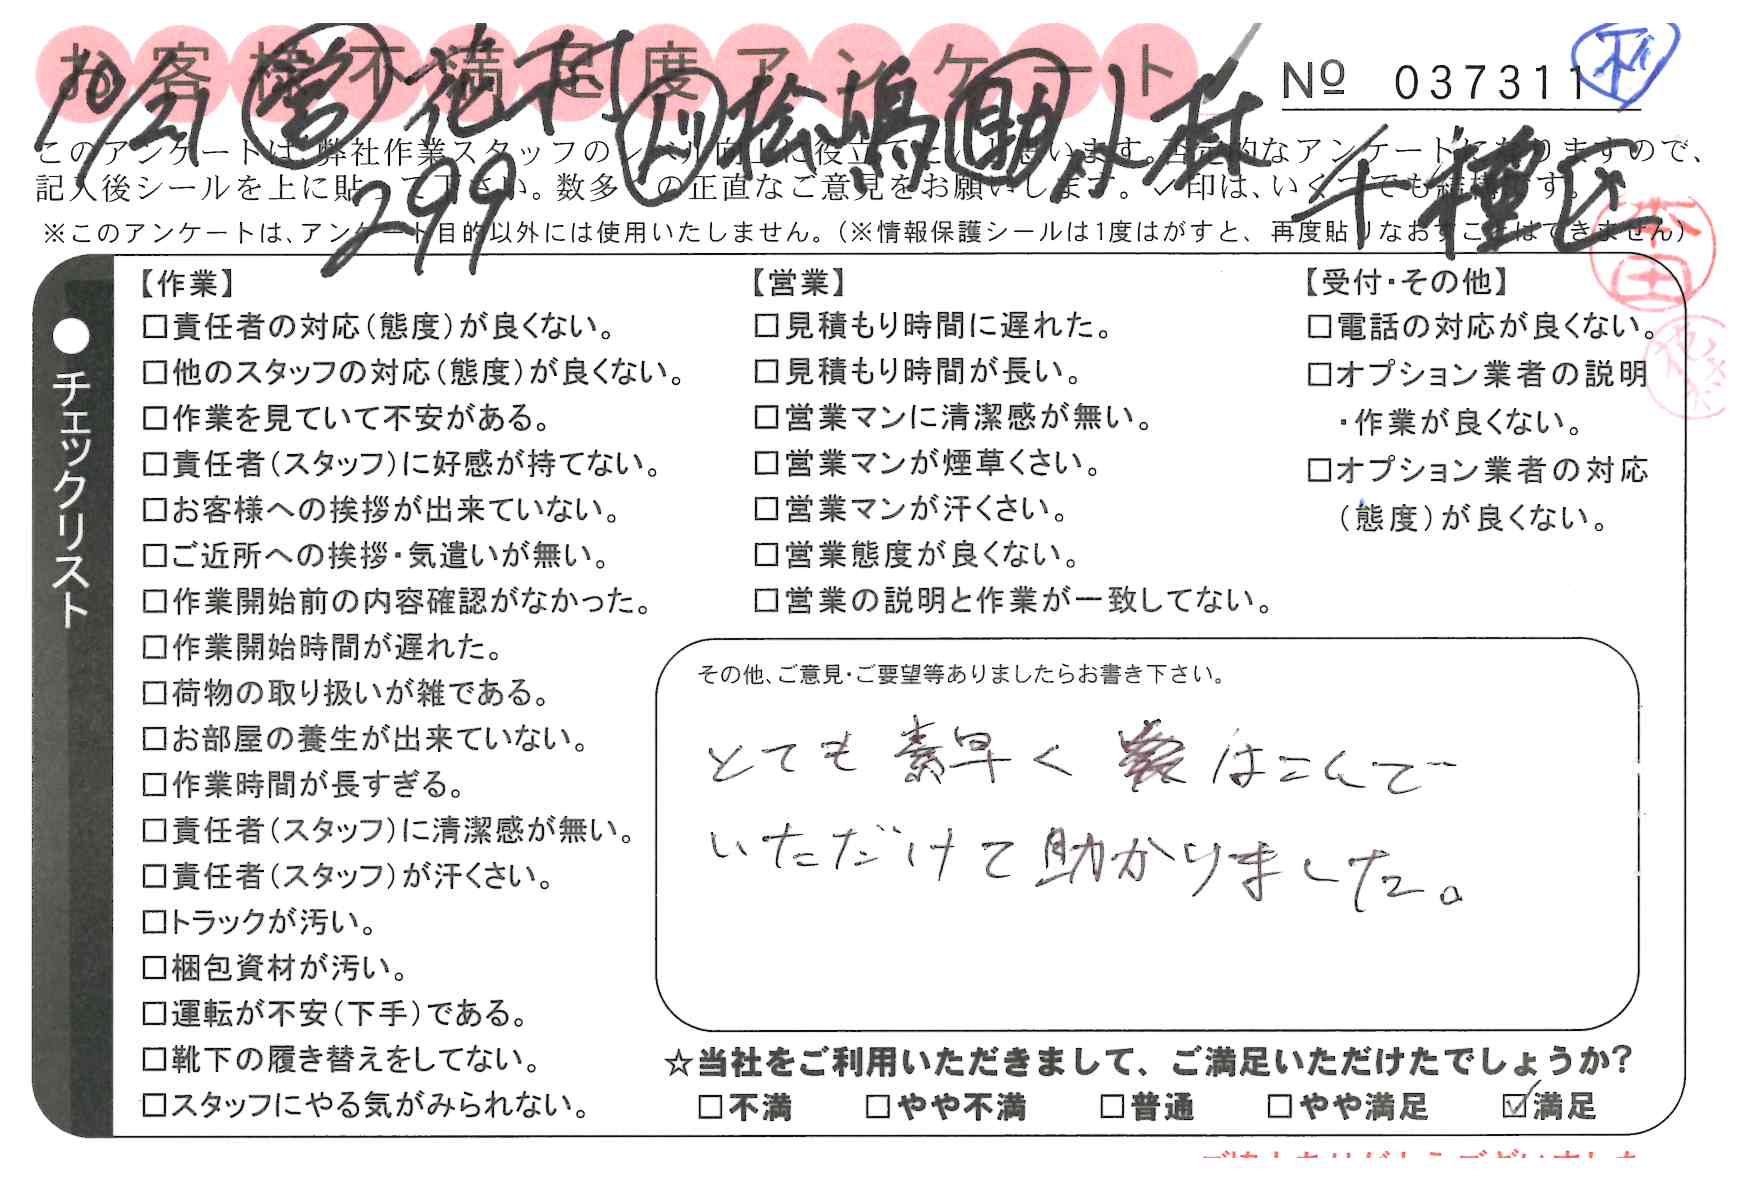 お客様不満足度アンケート
Nº 037311
10/21 営 花村 リ 松嶋 助 小林
299
千種区
このアンケートは、弊社作業スタッフのレベル向上に役立てたいと思います。否定的なアンケートになりますので、
記入後シールを上に貼って下さい。数多くの正直なご意見をお願いします。✓印は、いくつでも結構です。
※このアンケートは、アンケート目的以外には使用いたしません。(※情報保護シールは1度はがすと、再度貼りなおすことはできません)
●チェックリスト
【作業】
□責任者の対応(態度)が良くない。
□他のスタッフの対応(態度)が良くない。
□作業を見ていて不安がある。
□責任者(スタッフ)に好感が持てない。
□お客様への挨拶が出来ていない。
□ご近所への挨拶・気遣いが無い。
□作業開始前の内容確認がなかった。
□作業開始時間が遅れた。
□荷物の取り扱いが雑である。
□お部屋の養生が出来ていない。
□作業時間が長すぎる。
□責任者(スタッフ)に清潔感が無い。
□責任者(スタッフ)が汗くさい。
□トラックが汚い。
□梱包資材が汚い。
□運転が不安(下手)である。
□靴下の履き替えをしてない。
□スタッフにやる気がみられない。
【営業】
□見積もり時間に遅れた。
□見積もり時間が長い。
□営業マンに清潔感が無い。
□営業マンが煙草くさい。
□営業マンが汗くさい。
□営業態度が良くない。
□営業の説明と作業が一致してない。
【受付・その他】
□電話の対応が良くない。
□オプション業者の説明
・作業が良くない。
□オプション業者の対応
(態度)が良くない。
その他、ご意見・ご要望等ありましたらお書き下さい。
とても素早く はこんで
いただけて助かりました。
☆当社をご利用いただきまして、ご満足いただけたでしょうか?
□不満 □やや不満 □普通 □やや満足 ☑満足